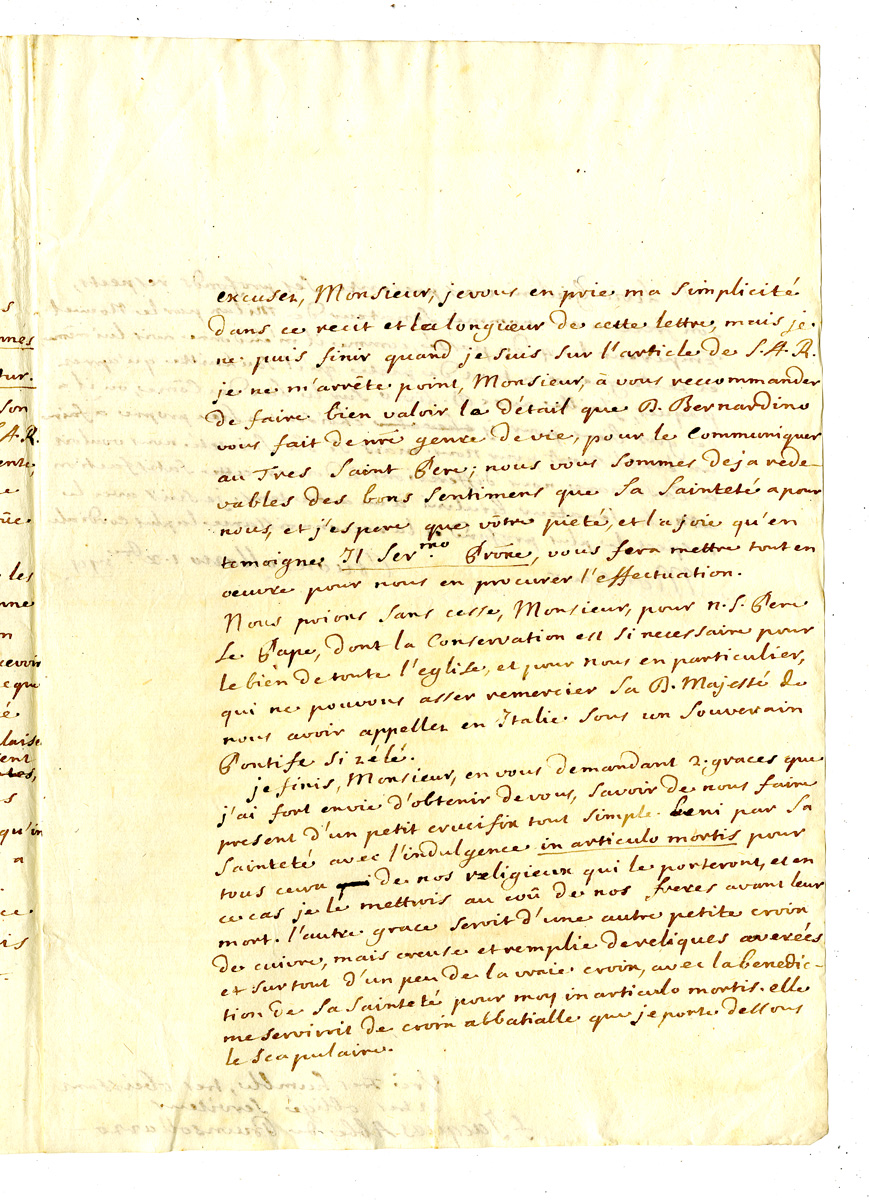 s
nnes
tur.
son
S.A.R.
ente,
e
ûe
les
nne
n
cevoir
e que
é
laise
ient
s
qu'in
a
ce
is
excusez, Monsieur, je vous en prie ma simplicité
dans ce recit et la longüeur de cette lettre, mais je
ne puis finir quand je suis sur l'article de S.A.R.
je ne m'arrête point, Monsieur, à vous reccommander
de faire bien valoir le détail que D. Bernardino
vous fait de nre genre de vie, pour le communiquer
au Tres Saint Pere; nous vous sommes deja rede-
vables des bons sentimens que Sa Sainteté a pour
nous, et j'espere que vôtre pieté, et la joie qu'en
temoigne Il Ser.mo Prone, vous fera mettre tout en
oeuvre pour nous en procurer l'effectuation.
Nous prions sans cesse, Monsieur, pour n. S. Pere
Le Pape, dont la Conservation est si necessaire pour
le bien de toute l'eglise, et pour nous en particulier,
qui ne pouvons asser remercier Sa D. Majesté de
nous avoir appellez en Italie sous un Souverain
Pontife si zélé.
je finis, Monsieur, en vous demandant 2. graces que
j'ai fort envie d'obtenir de vous, savoir de nous faire
present d'un petit crucifix tout simple. beni par Sa
Sainteté avec l'indulgence in articulo mortis pour
tous ceux de nos religieux qui le porteront, et en
ce cas je le mettrois au coû de nos freres avant leur
mort. l'autre grace seroit d'une autre petite croix
de cuivre, mais creuse et remplie de reliques averées
et surtout d'un peu de la vraie croix, avec la benedic-
tion de Sa Sainteté pour moy in articulo mortis. elle
me servirrit de croix abbatialle que je porte dessous
le scapulaire.